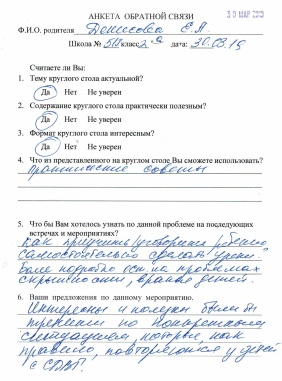 АНКЕТА ОБРАТНОЙ СВЯЗИ
30 МАР 2019
Ф.И.О. родителя Денисова Е.А
Школа № 518 класс 2 дата: 30.03.19
Считаете ли Вы:
1. Тему круглого стола актуальной?
Да Нет Не уверен
2. Содержание круглого стола практически полезным?
Да Нет Не уверен
3. Формат круглого стола интересным?
Да Нет Не уверен
4. Что из представленного на круглом столе Вы сможете использовать?
Практические советы
5. Что бы Вам хотелось узнать по данной проблеме на последующих
встречах и мероприятиях?
Как приучить/уговорить ребенка
самостоятельно сделать уроки.
Более подробно ост. на проблемах
скрытности, вранья детей.
6. Ваши предложения по данному мероприятию.
Интересны и полезны были бы
тренинги по конкретным
ситуациям, которые, как
правило, повторяются у детей
с СДВГ.